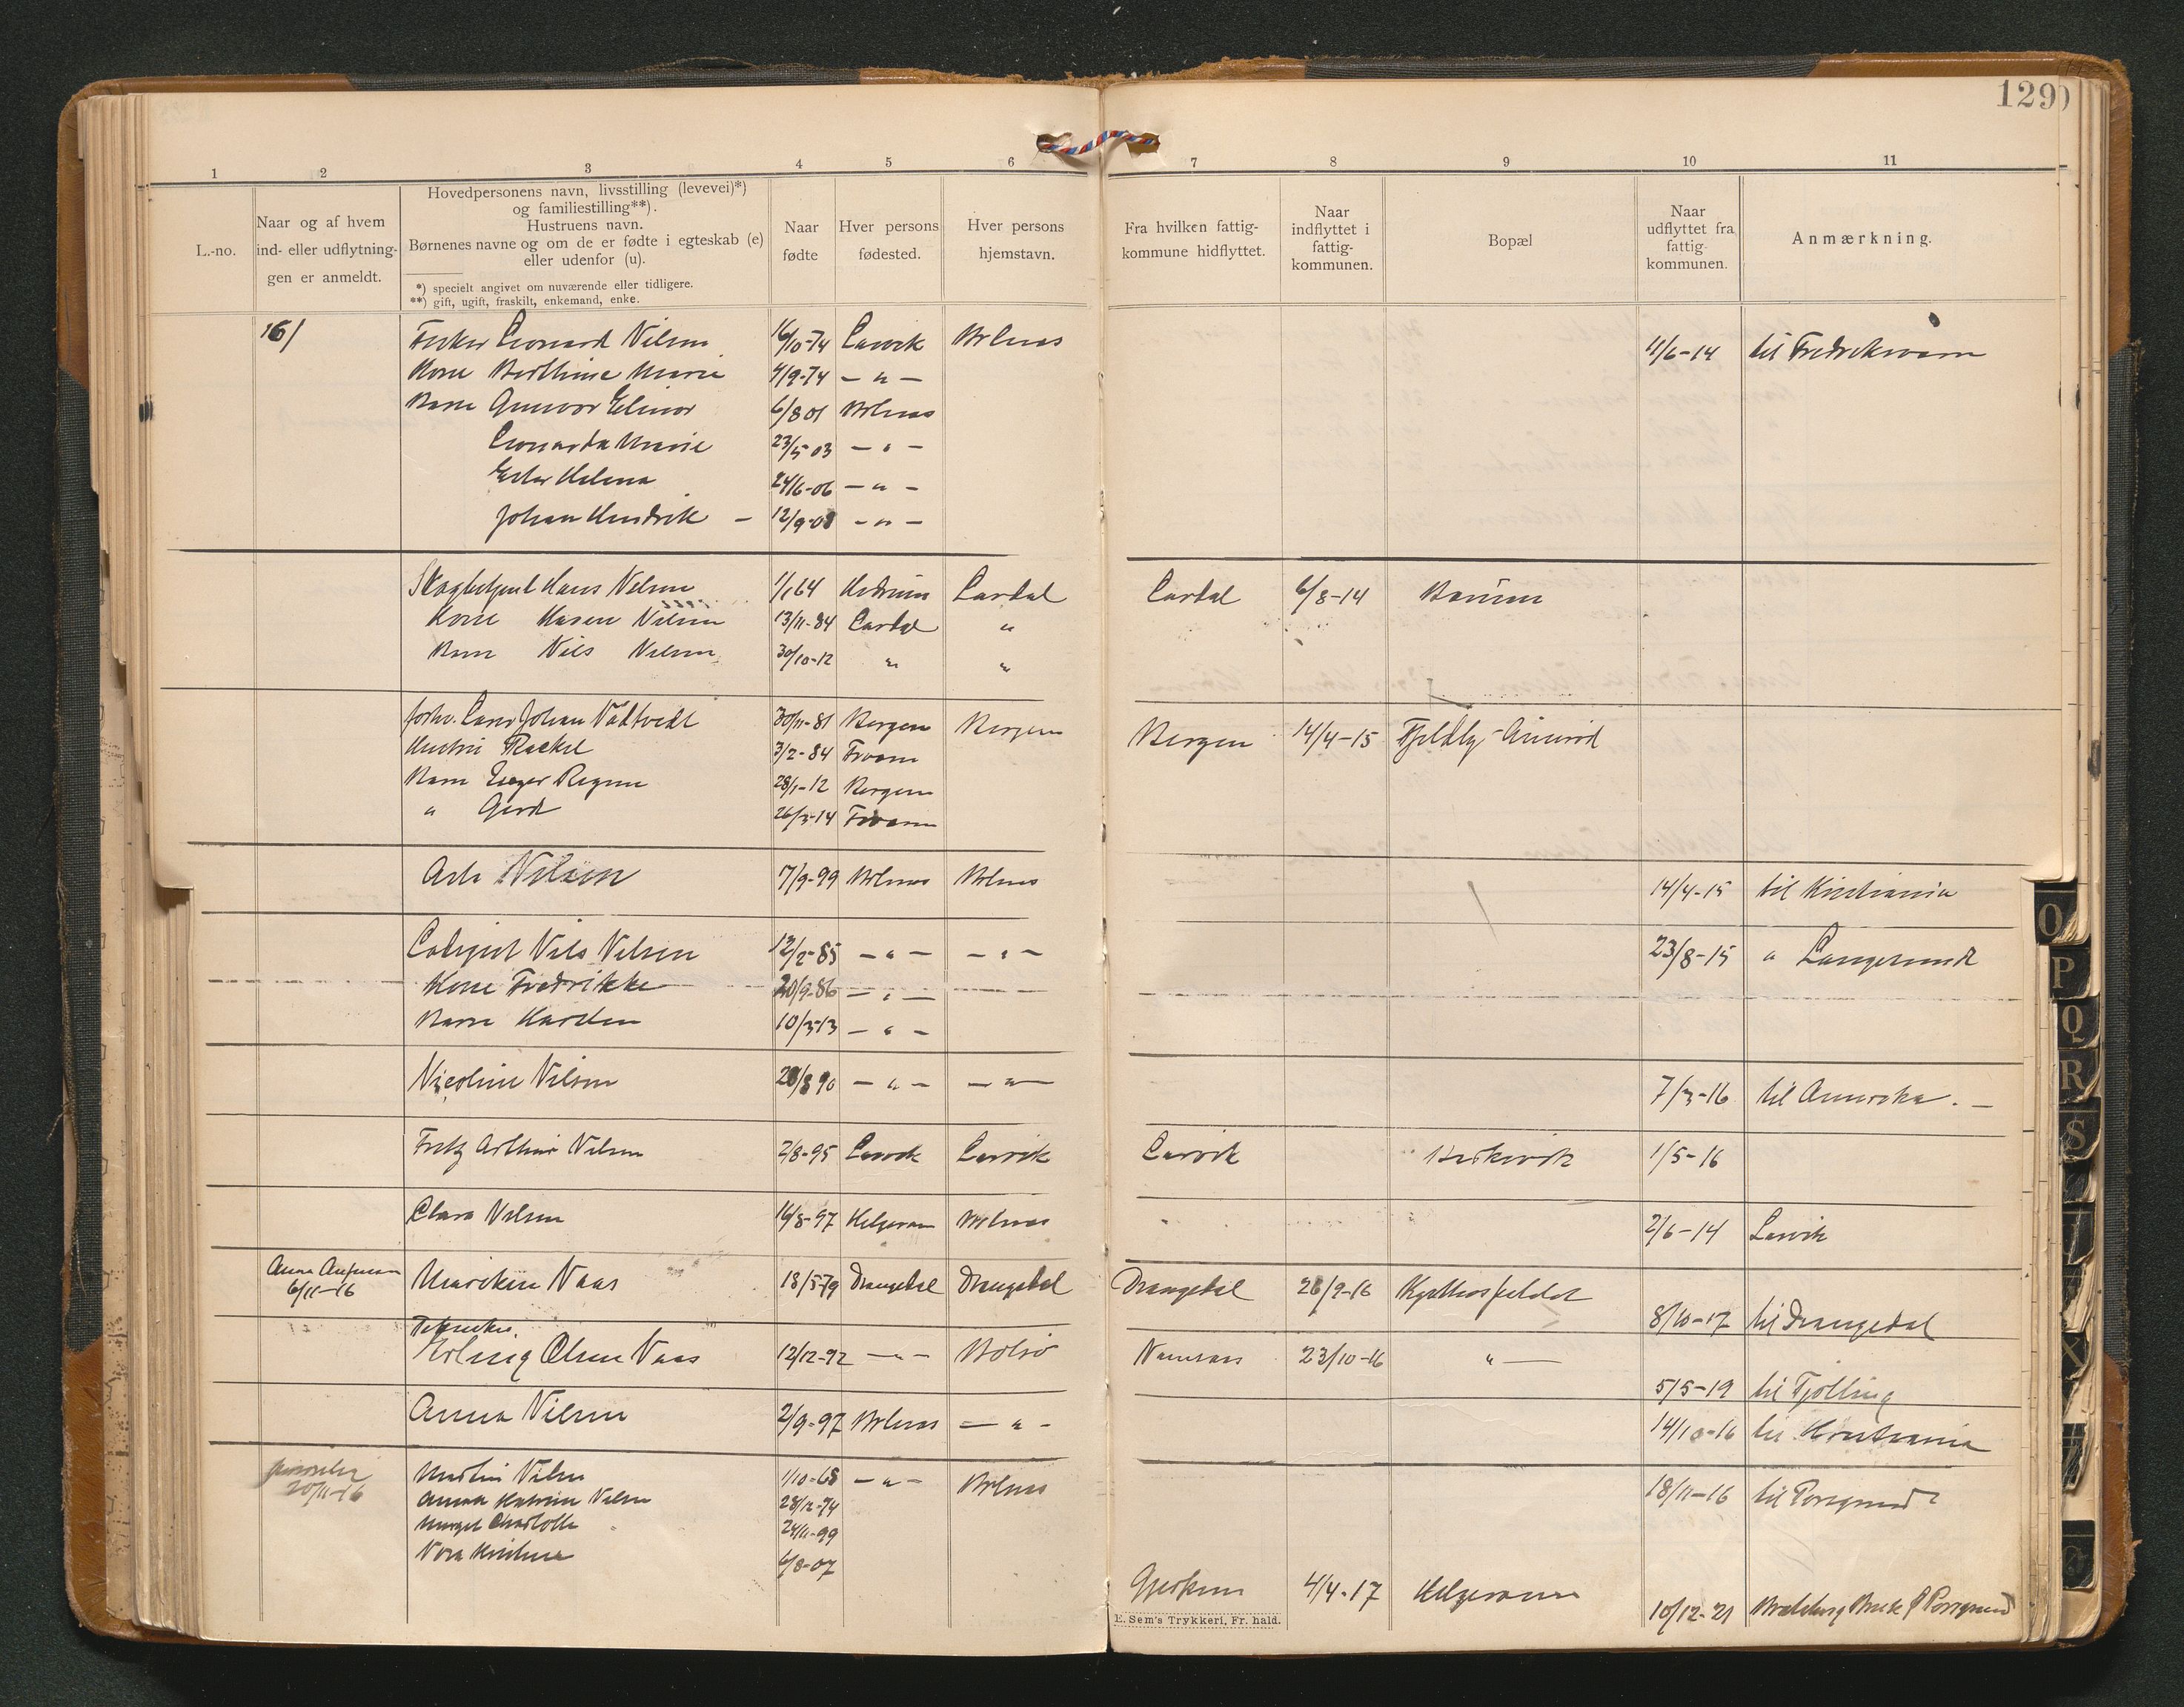 129
1 2 3 4 5 6 7 8 9 10 11
L.-no.
Naar og af hvem
ind- eller udflytning-
gen er anmeldt.
Hovedpersonens navn, livsstilling (levevei)*)
og familiestilling**).
Hustruens navn.
Børnenes navne og om de er fødte i egteskab (e)
eller udenfor (u).
*) specielt angivet om nuværende eller tidligere.
**) gift, ugift, fraskilt, enkemand, enke.
Naar
fødte
Hver persons
fødested.
Hver persons
hjemstavn.
Fra hvilken fattig-
kommune hidflyttet.
Naar
indflyttet i
fattig-
kommunen.
Bopæl
Naar
udflyttet fra
fattig-
kommunen.
Anmærkning.
16/ Fisker Leonard Nilsen 16/10-74 Larvik Brlnæs 11/6-14 til Fredriksværn
Kone Berthine Marie 4/9-74 — " —
Barn Gunvor Elinor 6/8 01 Brlnæs
Leonarda Marie 23/5 03 — " —
Ester Helena 24/6-06 — " —
Johan Hendrik — 12/9-08 — " —
Skogbetjent Hans Nilsen 1/1 64 Hedrum Lardal Lardal 6/8-14
Kone Karen Nilsen 13/11-84 Lardal "
Barn Nils Nilsen 30/10-12 " "
Johan Nødtvedt 30/11-81 Bergen Bergen Bergen 14/4-15 Fjeldly
Hustru Rackel 3/2-84 Frværn
Barn Regine 28/1-12 Bergen
" Gerd 26/3-14 Frværn
Nilsen 7/9-99 Brlnæs Brlnæs 14/4-15 til Kristiania
Nils Nilsen 12/2-85 — " — — " — 23/8-15 " Langesund
Kone Fredrikke 20/9-86 — " —
Barn Karsten 10/3-13 — " —
Nicoline Nilsen 28/8 90 — " — — " — 7/3-16 til Amerika. —
Fritz Arthur Nilsen 2/8-95 Larvik Larvik Larvik 1/5-16
Clara Nilsen 16/8-97 Helgeroa Brlnæs 2/6-14 Larvik
Anna 6/11-16 Naas 18/5 79 Drangedal Drangedal Drangedal 26/9-16 8/10-17 til Drangedal
Erling Olsen Naas 12/12-92 — " — Bolsø Namsos 23/10-16 " — 5/5-19 til Tjølling
Anna Nilsen 2/9-97 Brlnæs — " — 14/10-16 til Kristiania
20/11-16 Martin Nilsen 1/10-68 — " — Brlnæs 18/11-16 til Porsgrund
Anna Katrine Nilsen 28/12-74
Margit Charlotte 24/11-99
Nora Kristine 6/8-07
Gjerpen 4/4-17 Helgeroa 10/12-21 Porsgrund
E. Sem's Trykkeri, Fr. hald.
O
P
Q
R
S
T
X